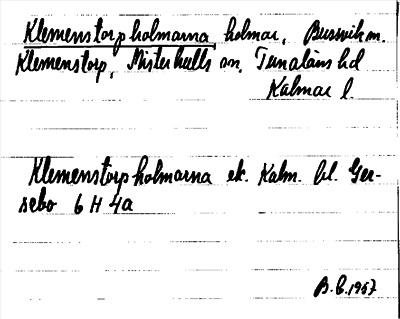 Klemenstorpholmarna, holmar, Bussvik m.
Klemenstorp, Misterhults sn. Tunaläns hd
Kalmar l.
Klemenstorpholmarna ek. Kalm. bl. Ger-
sebo 6 H 4a
B.E. 1967